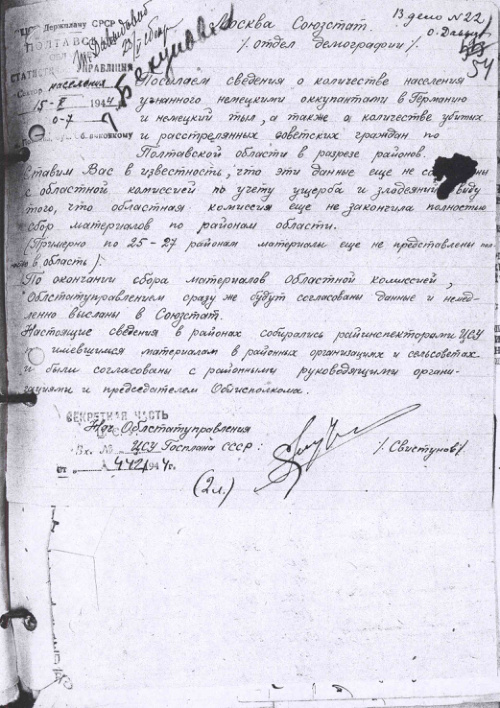 Москва Союзстат.
В дело № 22
/. отдел демографии /.
54
Держплану СРСР
ПОЛТАВСЬК
СТАТИСТИ УПРАВЛІННЯ
Сектор населения
15-II 1944
0-7
Посылаем сведения о количестве населения
угнанного немецкими оккупантами в Германию
и немецкий тыл, а также о количестве убитых
и расстрелянных советских граждан по
Полтавской области в разрезе районов.
Ставим Вас в известность, что эти данные еще не
с областной комиссией по учету ущерба и злодеяний виду
того, что областная комиссия еще не закончила полностью
сбор материалов по районам области.
(Примерно по 25-27 районам материалы еще не представлены
в область).
По окончании сбора материалов областной комиссией,
Облстатуправлением сразу же будут согласованы данные и немед-
ленно высланы в Союзстат.
Настоящие сведения в районах собирались райинспекторами ЦСУ
по имевшимся материалам в районных организациях и сельсоветах
и были согласованы с районными руководящими органи-
зациями и председателем Облисполкома.
СЕКРЕТНАЯ ЧАСТЬ
Нач Облстатуправления
ЦСУ Госплана СССР:
/. Свистунов /.
Вх. №
от 194 г.
(2л.)